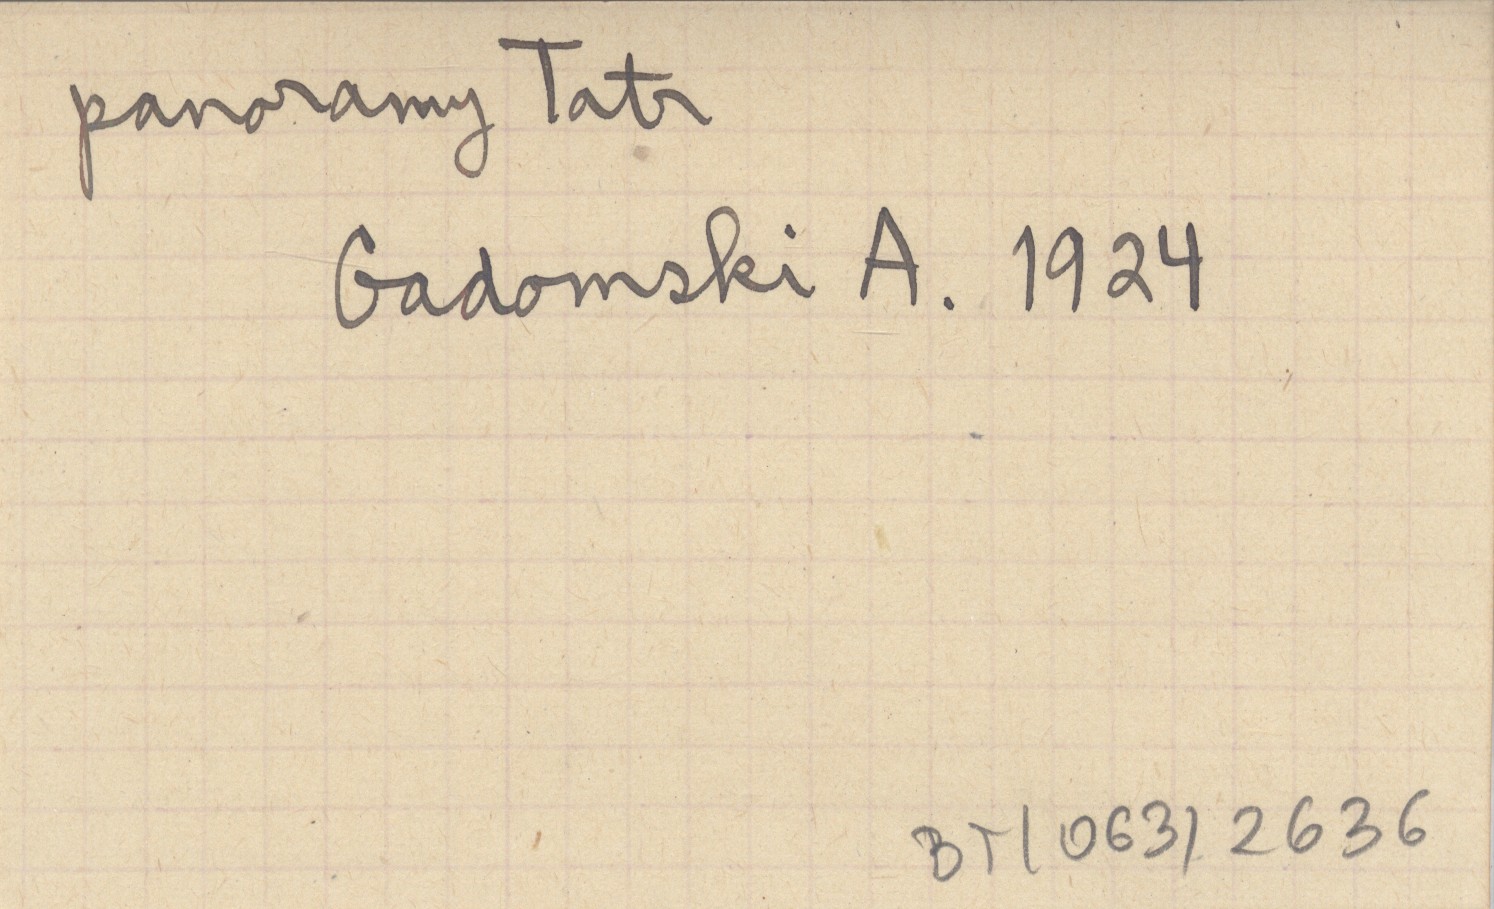 panoramy Tatr
Gadomski A. 1924
BT/063/2636